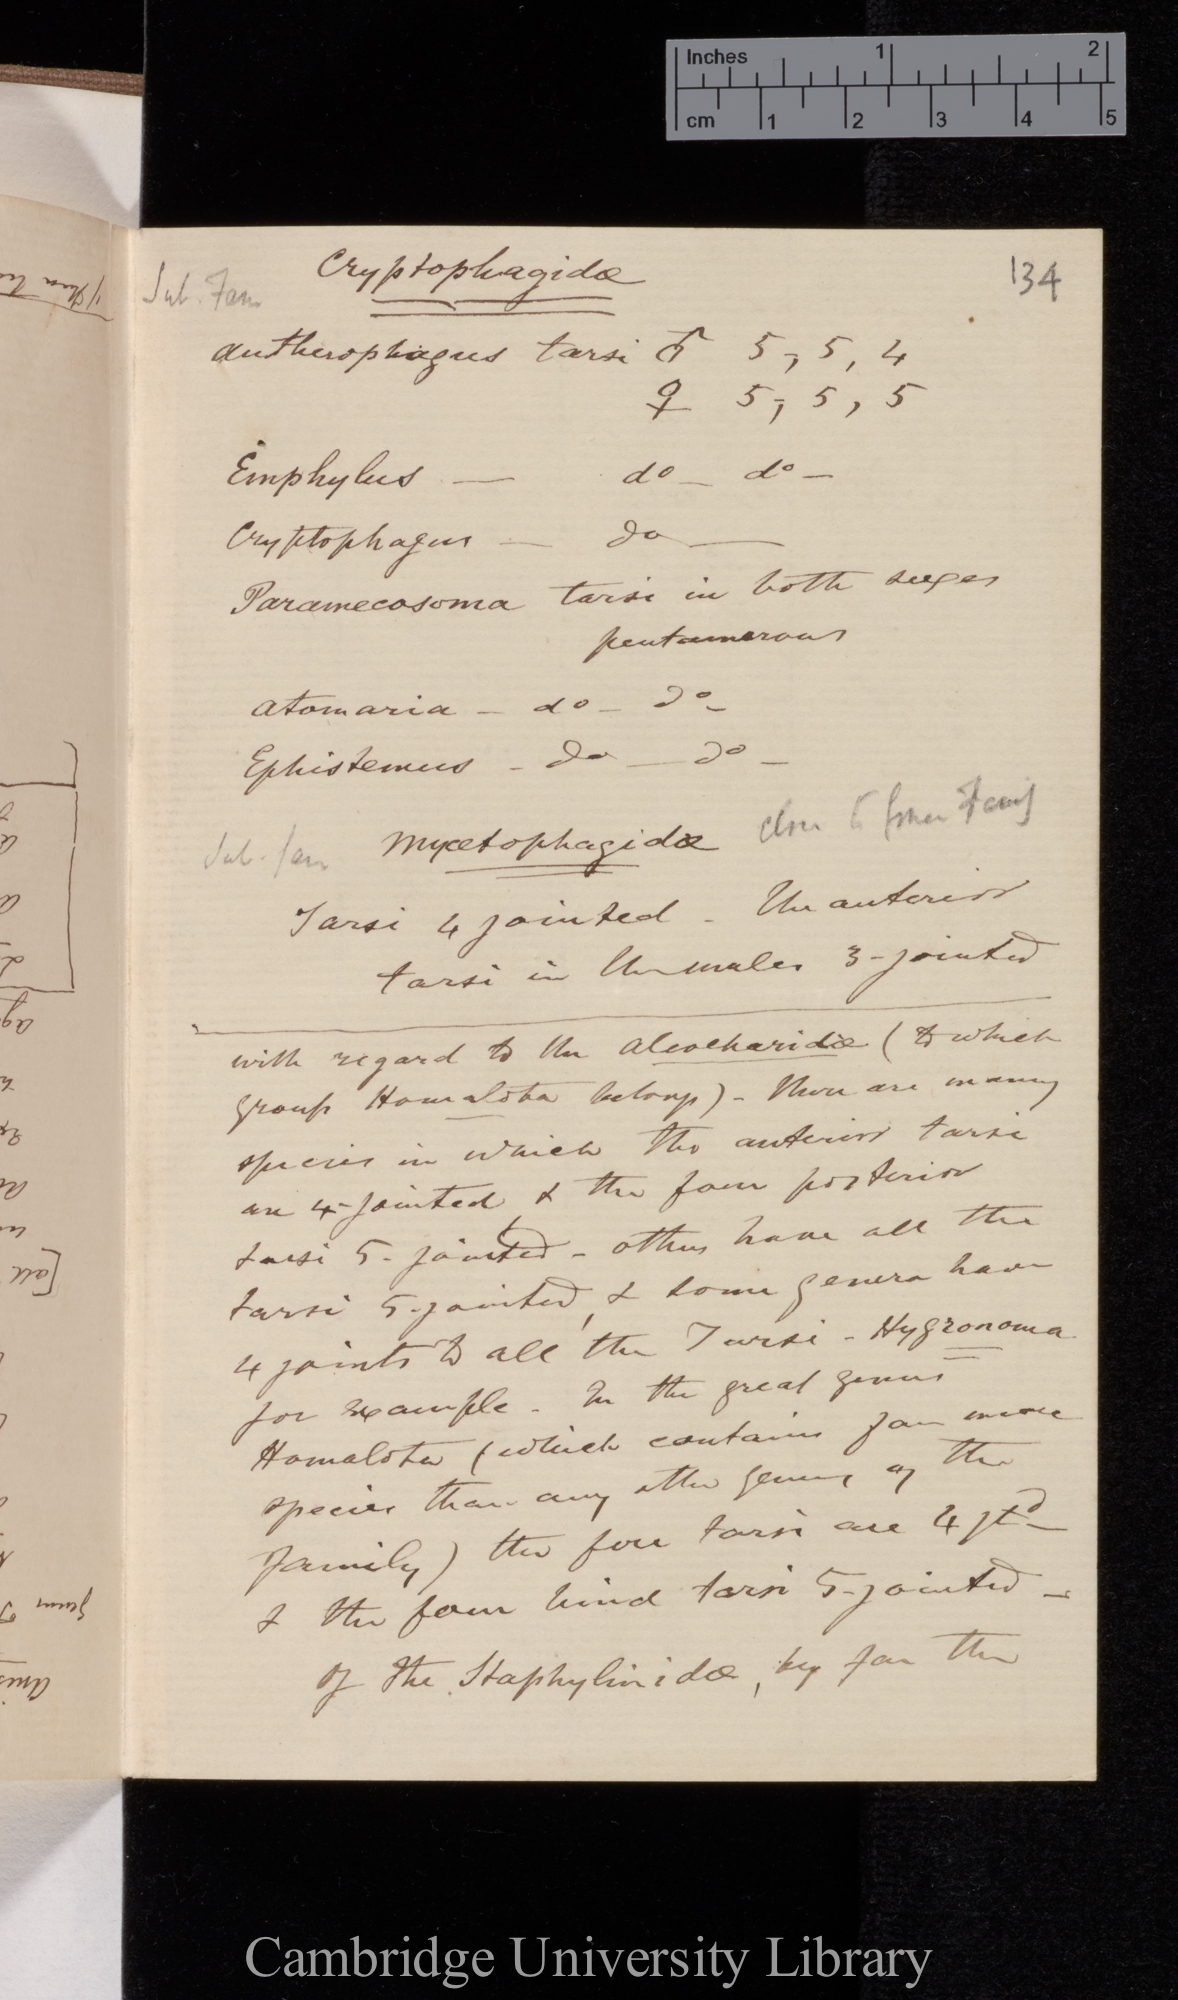 Inches 1 2
cm 1 2 3 4 5
134
Sub. Fam Cryptophagidæ
Antherophagus tarsi ♂ 5, 5, 4
♀ 5, 5, 5
Emphylus — do — do —
Cryptophagus — do —
Paramecosoma tarsi in both sexes
pentamerous
Atomaria — do — do —
Ephistemus — do — do —
Sub-fam Mycetophagidæ close to former Family
Tarsi 4 jointed — The anterior
tarsi in the males 3-jointed
with regard to the Aleocharidæ (to which
group Homalota belongs) — There are many
species in which the anterior tarsi
are 4-jointed & the four posterior
tarsi 5-jointed — others have all the
tarsi 5-jointed, & some genera have
4 joints to all the Tarsi — Hygronoma
for example. In the great genus
Homalota (which contains far more
species than any other genus of the
family) the fore tarsi are 4 jtd —
& the four hind tarsi 5-jointed —
Of the Staphylinidæ, by far the
genus
[all
Cambridge University Library